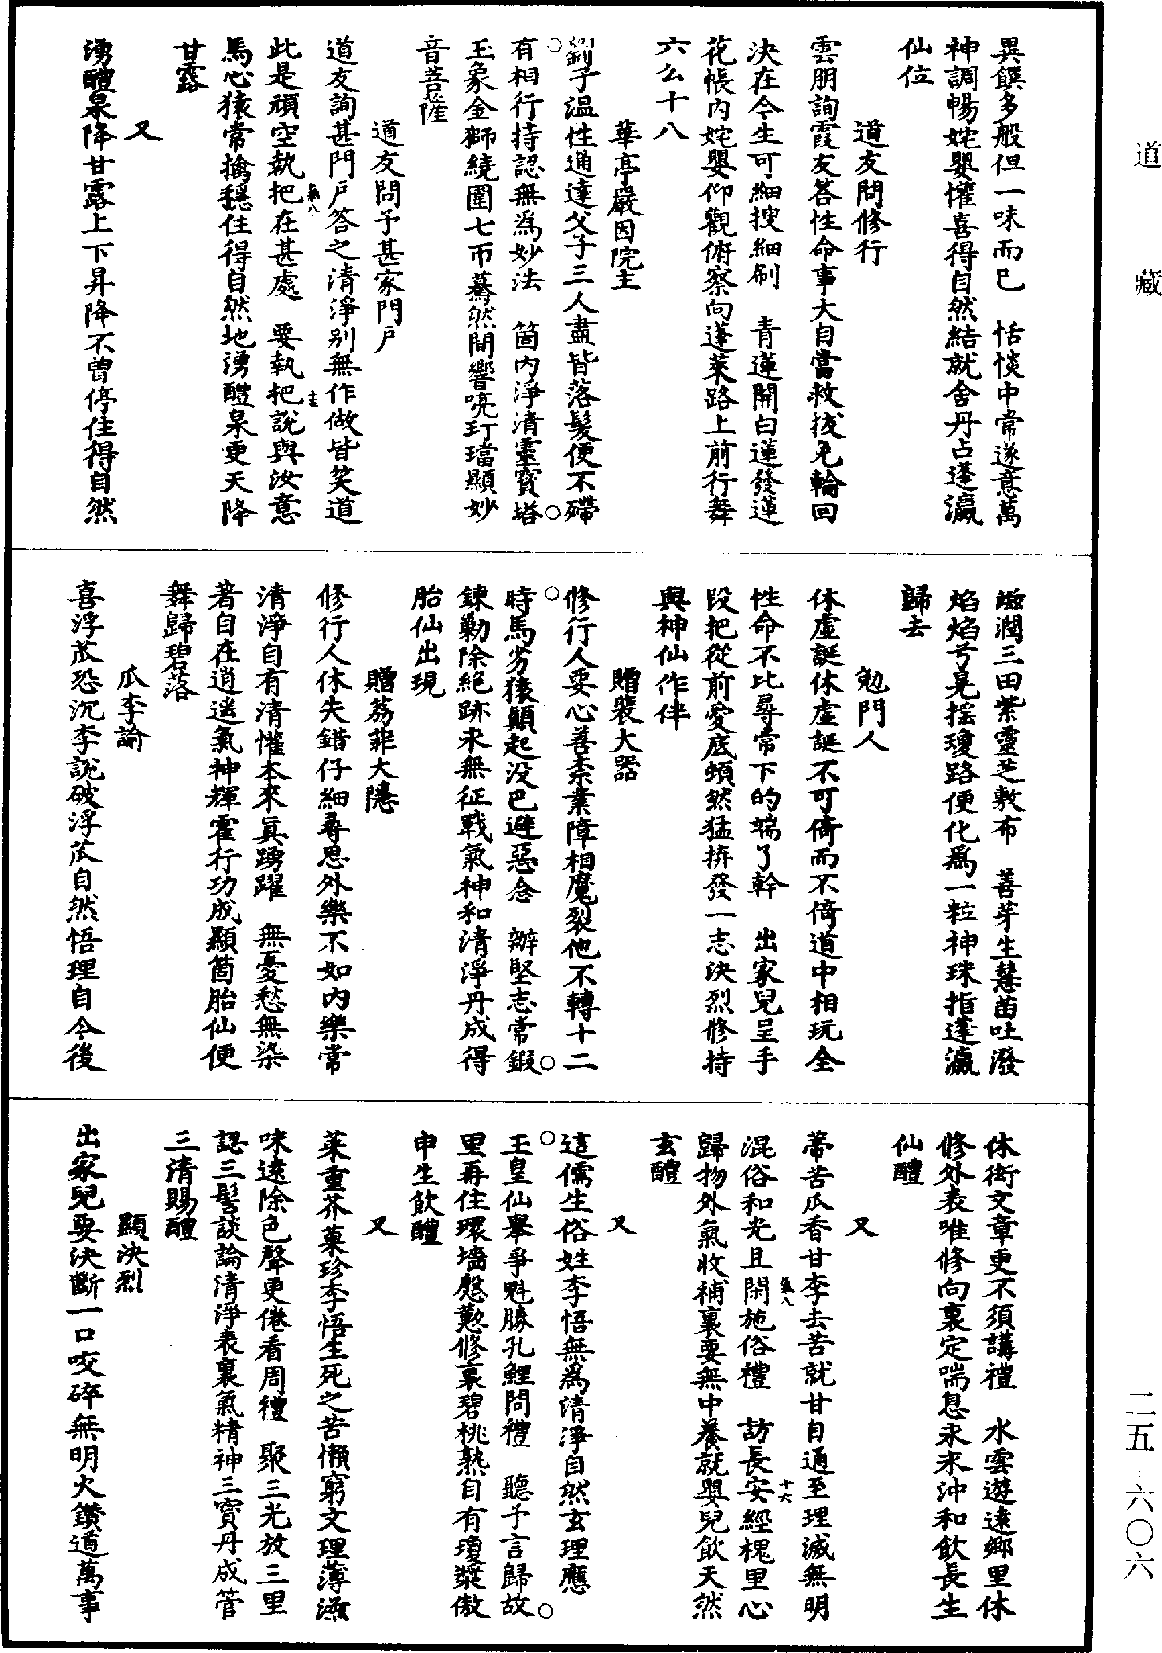 道藏
異饌多般但一味而已　恬惔中常遂意萬
神調暢姹嬰懽喜得自然結就舍丹占蓬瀛
仙位
道友問修行
雲朋詢霞友答性命事大自當救拔免輪回
決在今生可細搜細刷　青蓮開白蓮發蓮
花帳內姹嬰仰觀俯察向蓬萊路上前行舞
六么十八
華亭嚴因院主
劉子温性通達父子三人盡皆落髮便不磹
有相行持認無為妙法　箇內淨清靈寶塔
玉象金獅繞圍七帀驀然間響喨玎璫顯妙
音菩薩
道友問予甚家門戶
道友詢甚門戶答之清淨別無作做皆笑道
此是頑空執把在甚處　要執把說與汝意
馬心猿常擒穩住得自然地湧醴泉更天降
甘露
又
湧醴泉降甘露上下昇降不曾停住得自然
滋潤三田紫靈芝敷布　善芽生慧苗吐潑
焰焰兮晃搖瓊路便化為一粒神珠指蓬瀛
歸去
勉門人
休虛誕休虛誕不可倚而不倚道中相玩全
性命不比尋常下的端了幹　出家兒呈手
段把從前愛底頓然猛拚發一志決烈修持
與神仙作伴
贈裴大器
修行人要心善柰業障相魔裂他不轉十二
時馬劣猿顛起沒巴避惡念　辦堅志常鍛
鍊勤除絕跡來無征戰氣神和清淨丹成得
胎仙出現
贈荔菲大隱
修行人休失錯仔細尋思外樂不如內樂常
清淨自有清懽本來真踴躍　無憂愁無染
著自在逍遥氣神輝霍行功成顯箇胎仙便
舞歸碧落
瓜李論
喜浮瓜恐沉李說破浮瓜自然悟理自今後
休衒文章更不須講禮　水雲遊遠鄉里休
修外表唯修向裏定喘息永永沖和飲長生
仙醴
又
蔕苦瓜香甘李去苦就甘自通至理滅無明
混俗和光且閑施俗禮　訪長安經槐里心
歸物外氣收補裏要無中養就嬰兒飲天然
玄醴
又
這儒生俗姓李悟無為清淨自然玄理應
玉皇仙舉爭魁勝孔鯉問禮　聽予言歸故
里再住環墻慇懃修裏碧桃熟自有瓊漿傲
申生飲醴
又
菜重芥菓珍李悟生死之苦懶窮文理薄滋
味遠除色聲更倦看周禮　聚三光放三里
認三髻談論清淨表裏氣精神三寶丹成管
三清賜醴
顯決烈
出家兒要決斷一口咬碎無明火鑽遁萬事
二五─六〇六